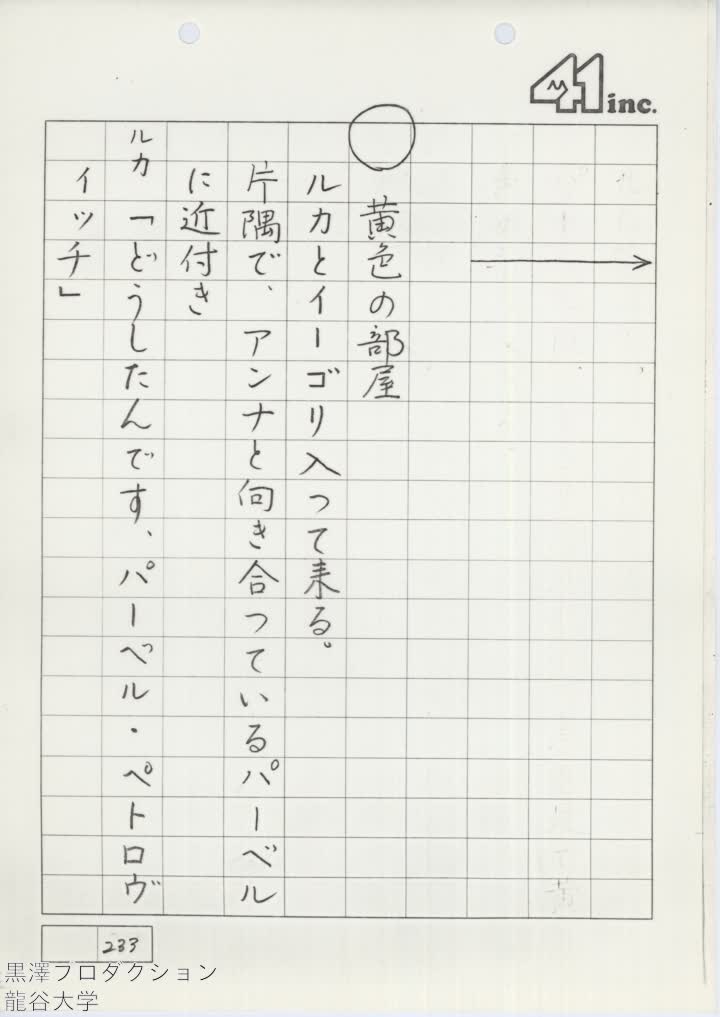 41 inc.
○ 黄色の部屋
ルカとイーゴリ入って来る。
片隅で、アンナと向き合っているパーベル
に近付き
ルカ「どうしたんです、パーベル・ペトロヴ
ィッチ」
233
黒澤プロダクション
龍谷大学